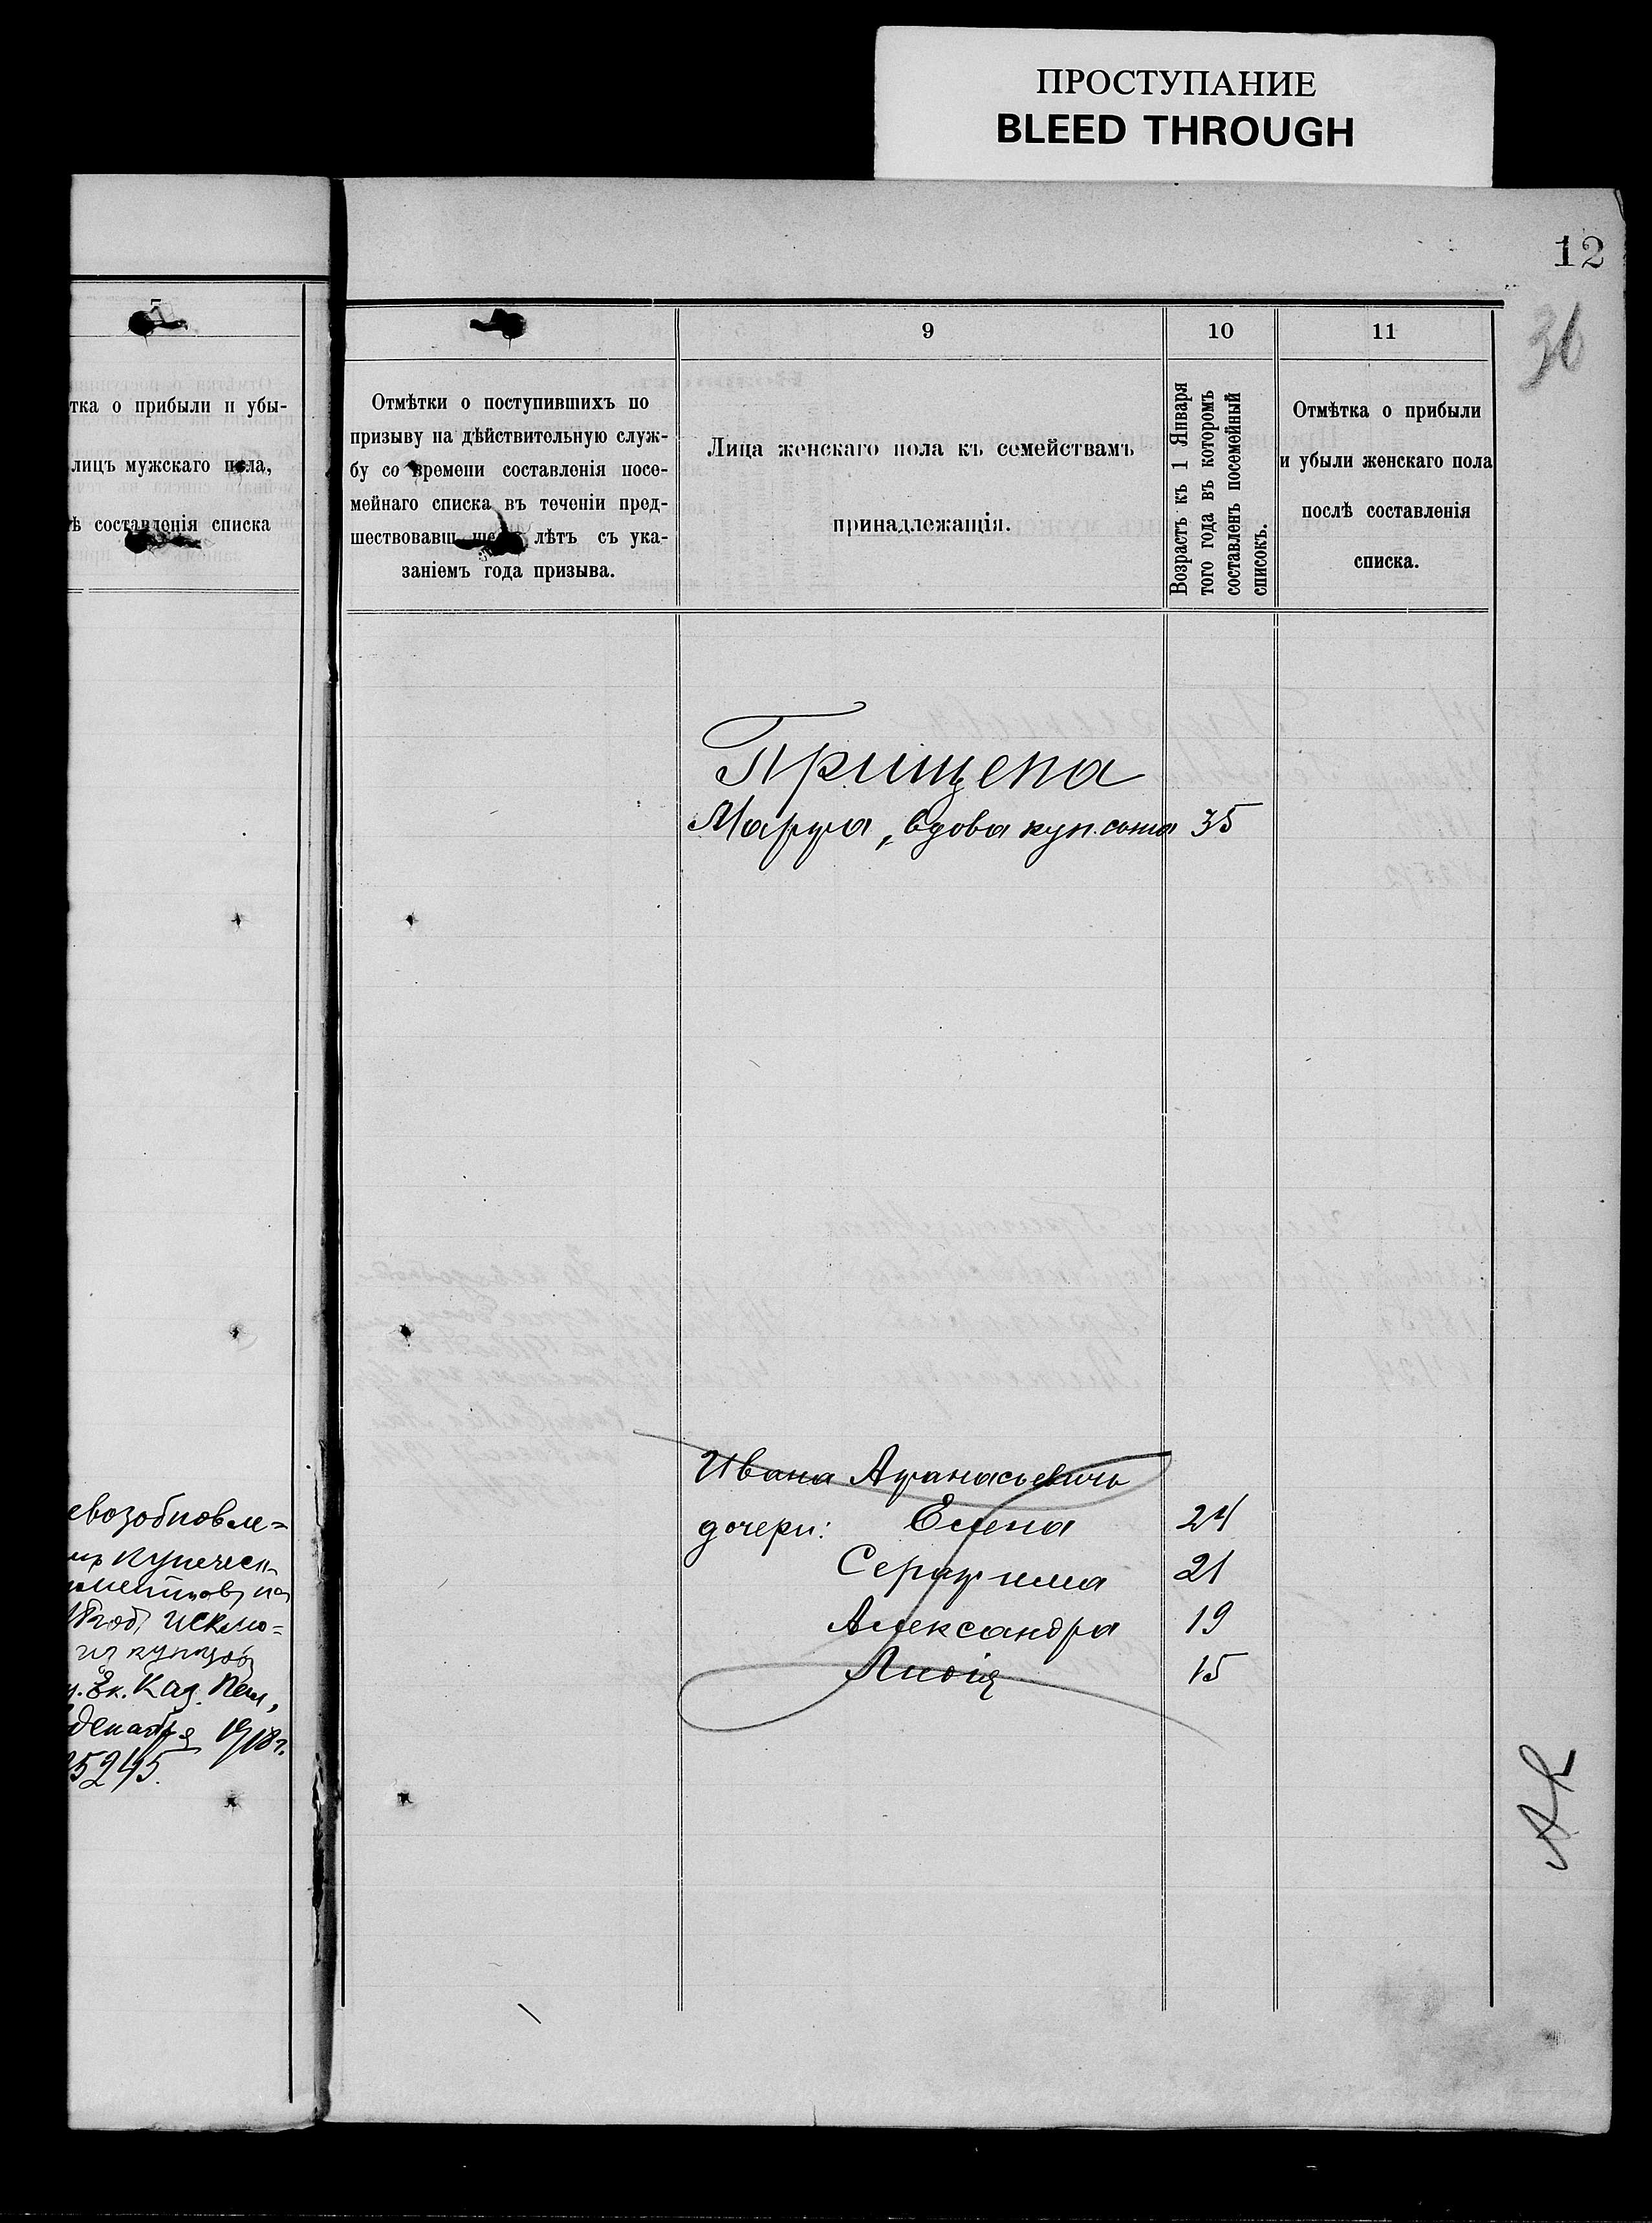 ПРОСТУПАНИЕ
BLEED THROUGH
12
36
тка о прибыли и убы-
лицъ мужскаго пола,
ѣ составленія списка
евозобновле=
купеческ
на
год, исклю=
из купцов
Ек. Каз. Пал,
декабря 1918 г.
5245.
Отмѣтки о поступившихъ по
призыву на дѣйствительную служ-
бу со времени составленія посе-
мейнаго списка въ теченіи пред-
шествовавш ше лѣтъ съ ука-
заніемъ года призыва.
9
Лица женскаго пола къ семействамъ
принадлежащія.
10
Возрастъ къ 1 Января
того года въ которомъ
составленъ посемейный
списокъ.
11
Отмѣтка о прибыли
и убыли женскаго пола
послѣ составленія
списка.
Прищепа
Марфа, вдова куп. сына 35
Ивана Афанасьевича
дочери: Елена 24
Серафима 21
Александра 19
Лидія 15